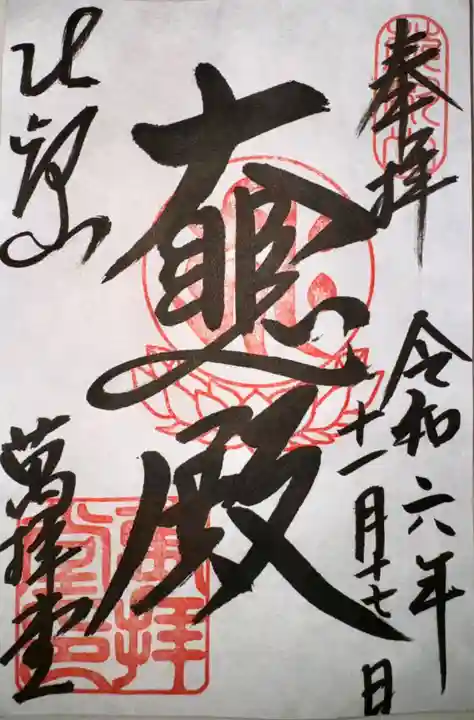 奉拝
令和六年
十一月十七日
殿
比叡山
萬拝堂